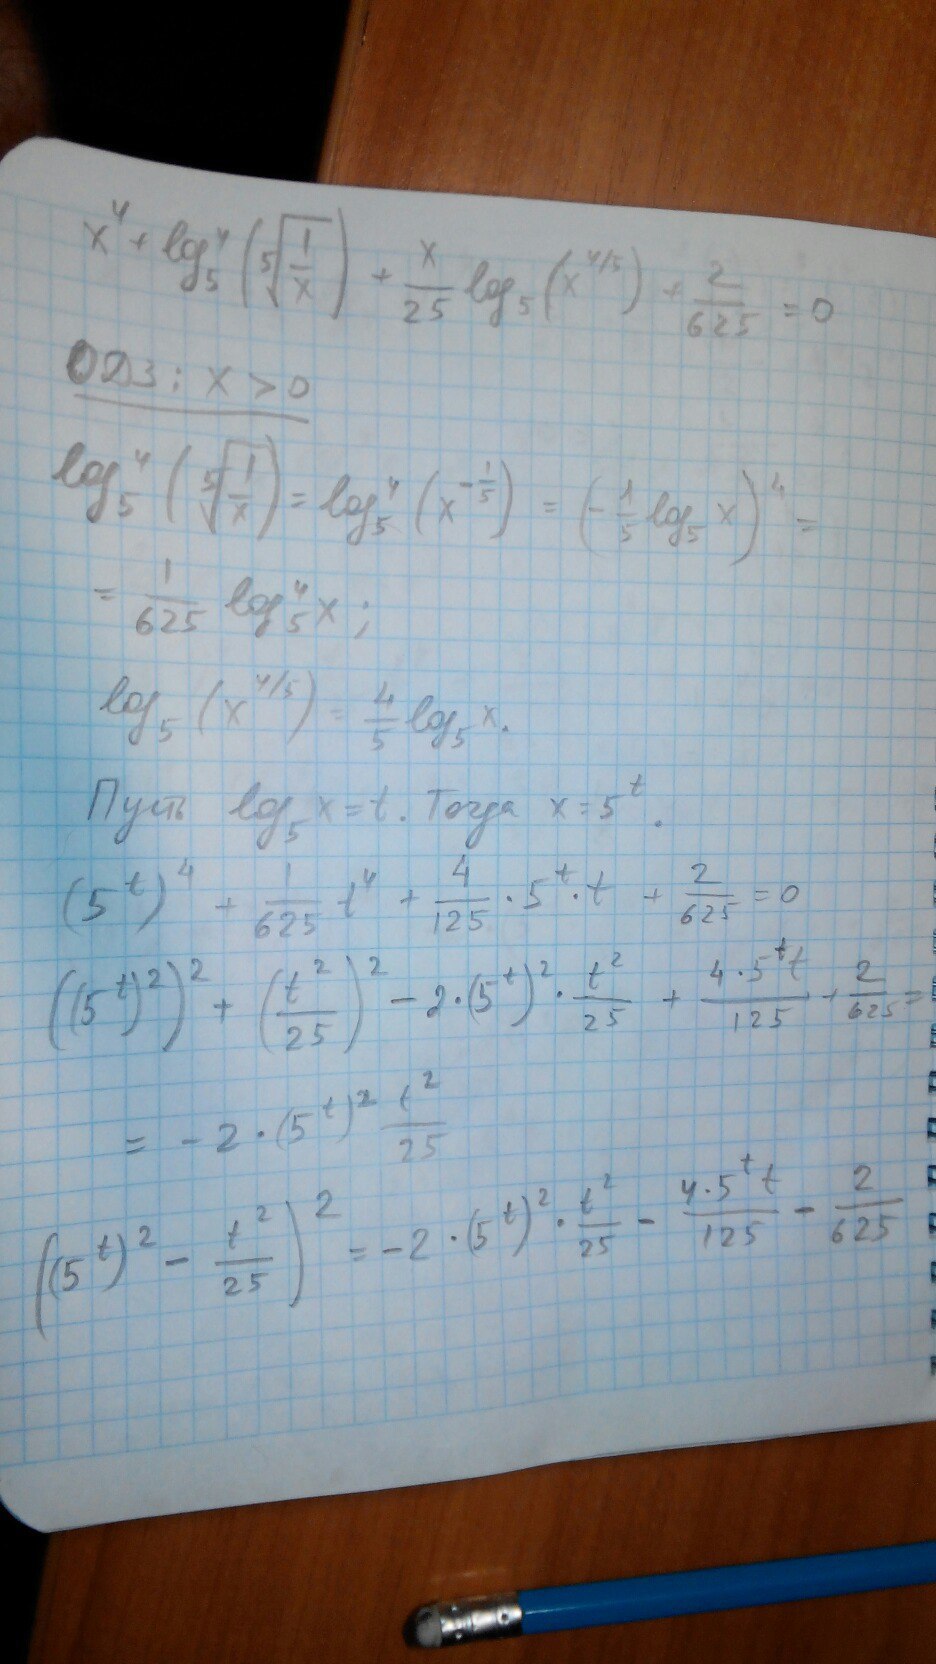 x⁴ + log₅⁴(⁵√(1/x)) + x/25 log₅(x^(4/5)) + 2/625 = 0
ОДЗ: x > 0
log₅⁴(⁵√(1/x)) = log₅⁴(x^(-1/5)) = (-1/5 log₅ x)⁴ =
= 1/625 log₅⁴ x;
log₅(x^(4/5)) = 4/5 log₅ x.
Пусть log₅ x = t. Тогда x = 5^t.
(5^t)⁴ + 1/625 t⁴ + 4/125 · 5^t · t + 2/625 = 0
((5^t)²)² + (t²/25)² - 2·(5^t)² · t²/25 + 4·5^t t/125 + 2/625 =
= -2·(5^t)² t²/25
((5^t)² - t²/25)² = -2·(5^t)² · t²/25 - 4·5^t t/125 - 2/625